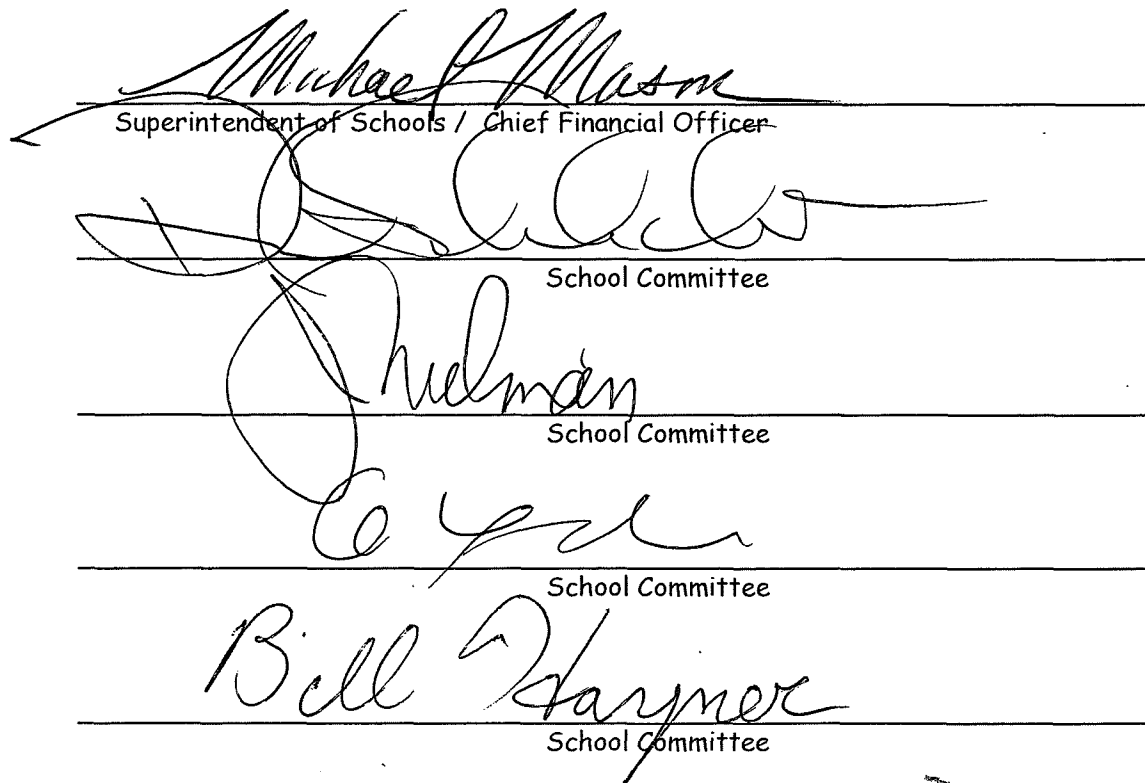 Michael Mason
Superintendent of Schools / Chief Financial Officer
School Committee
School Committee
School Committee
Bill Hayner
School Committee